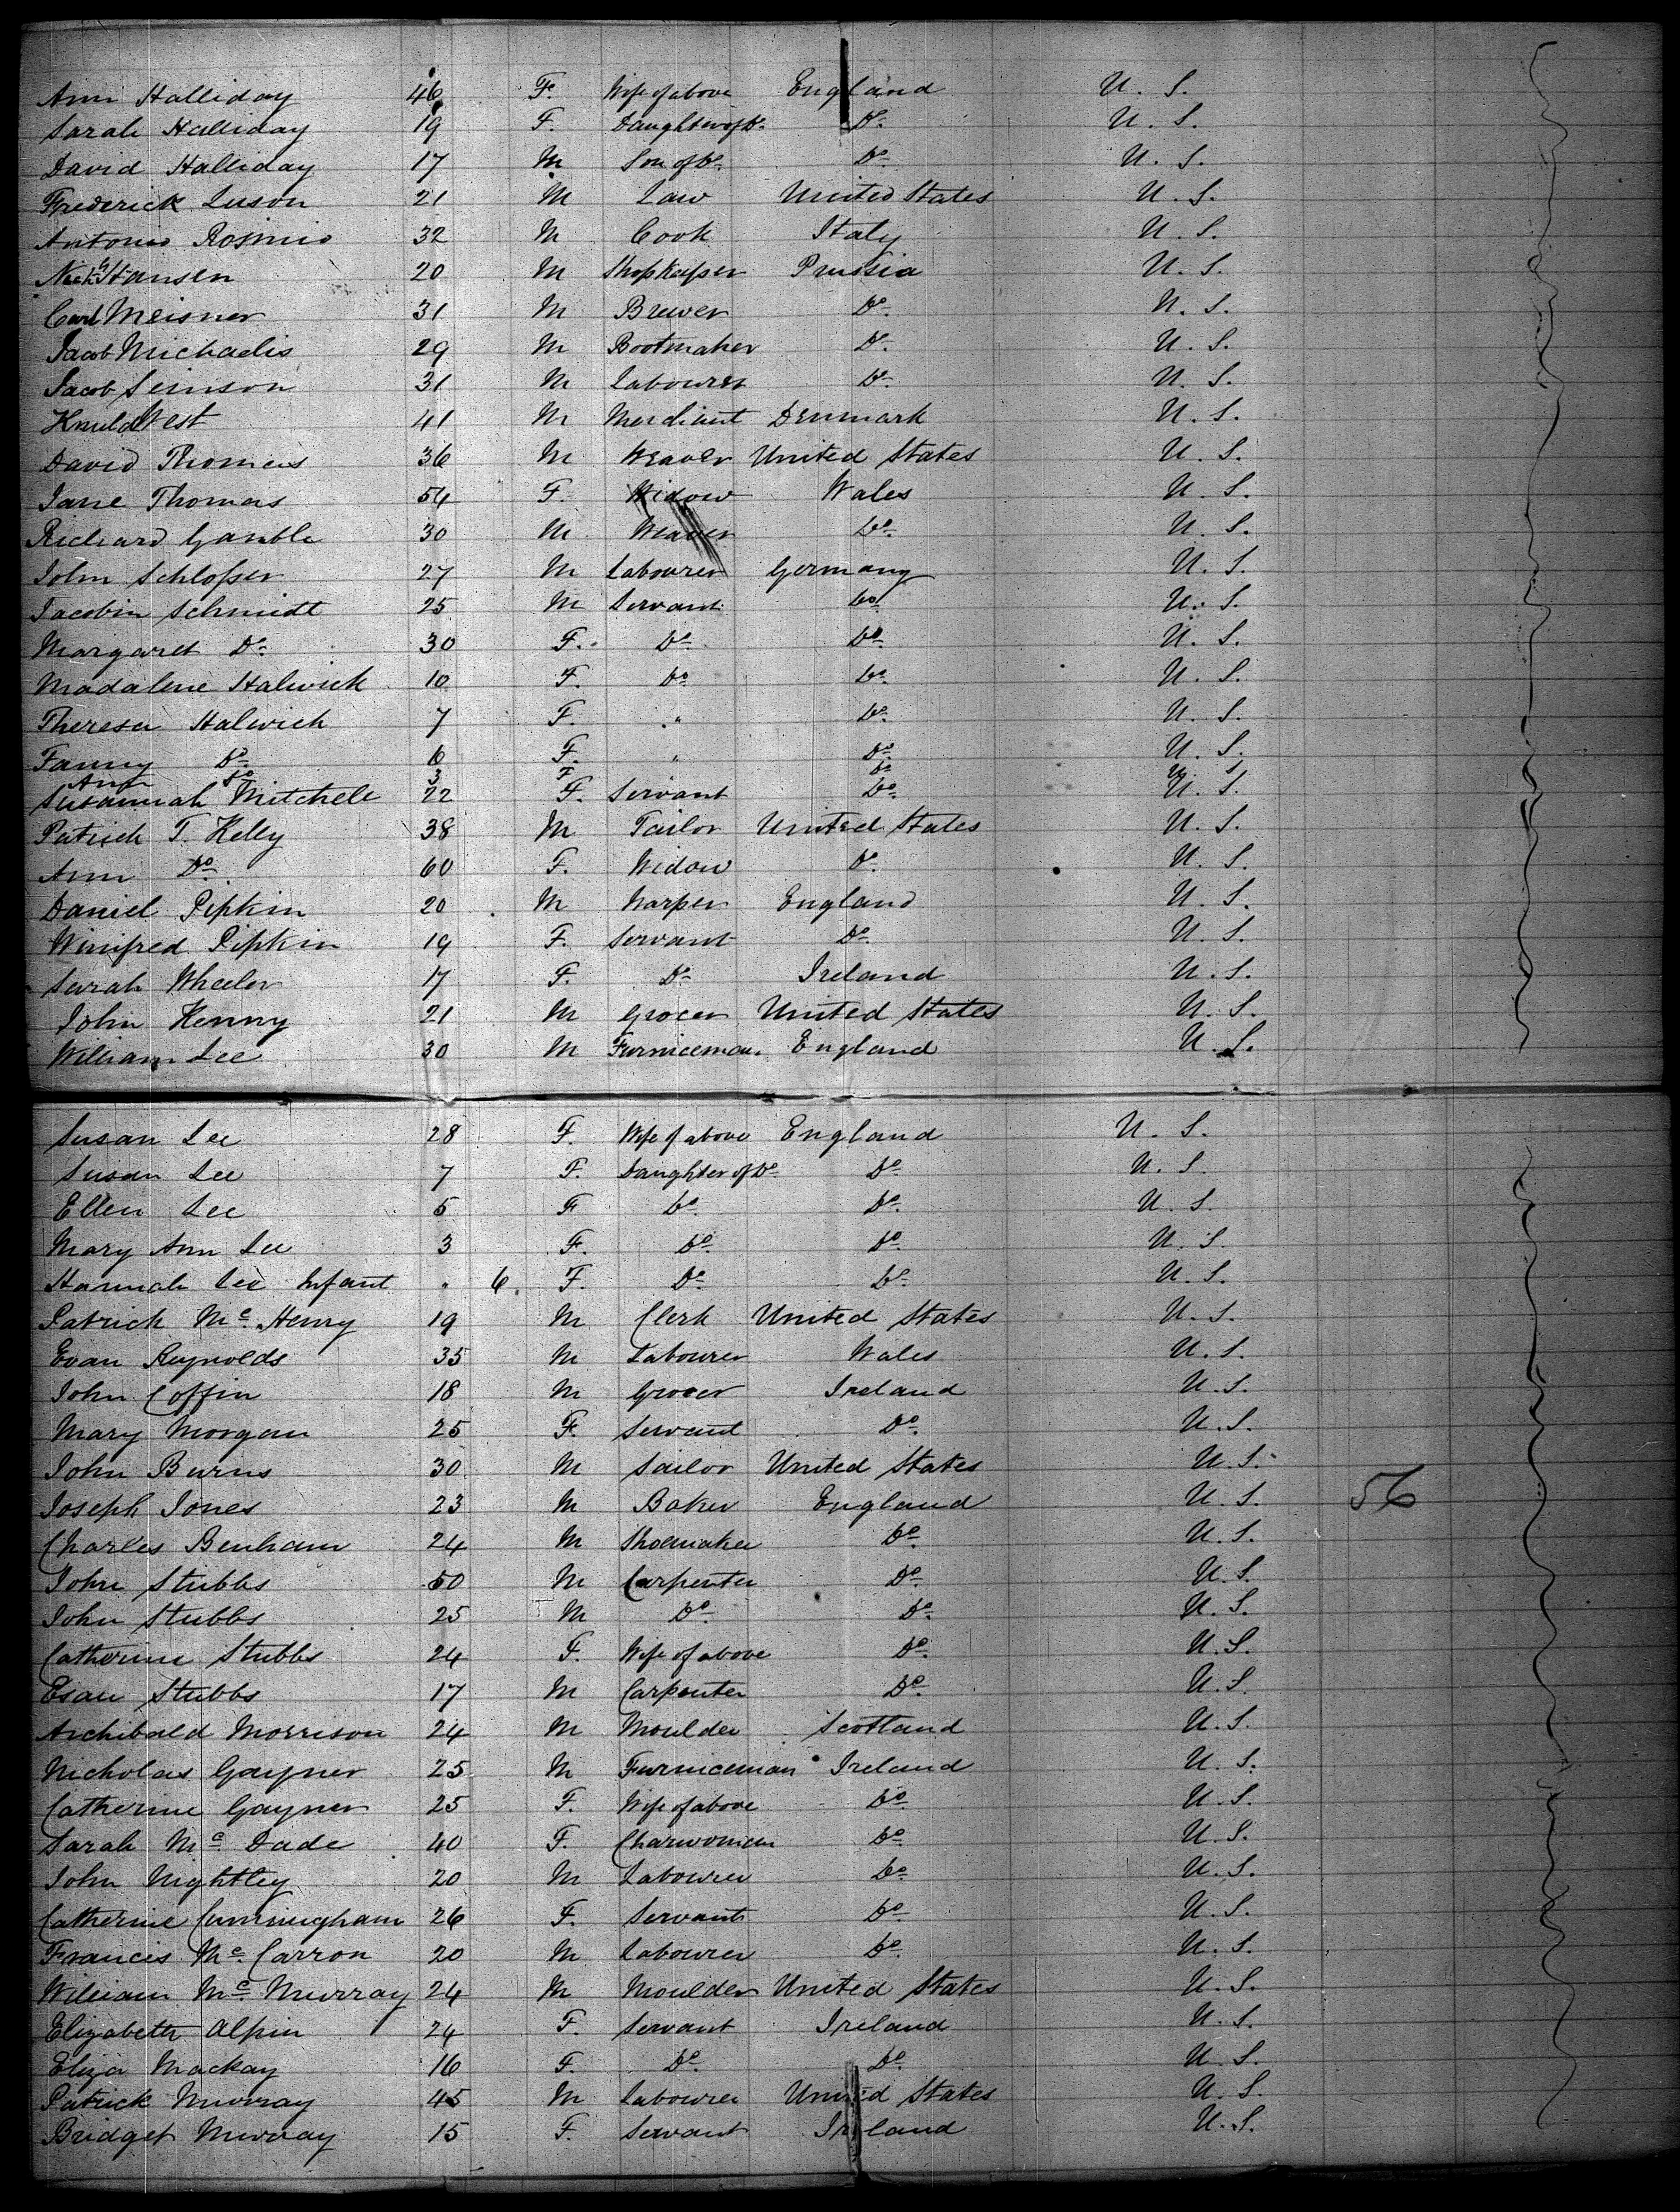 Ann Halliday 46 F. Wife of above England U. S.
Sarah Halliday 19 F. Daughter of Do. Do. U. S.
David Halliday 17 M Son of Do. Do. U. S.
Frederick Luson 21 M Law United States U. S.
Antonio Rosinio 32 M Cook Italy U. S.
Hansen 20 M Shopkeeper Prussia U. S.
Carl Meisner 31 M Brewer Do. U. S.
Jacob Michaelis 29 M Bootmaker Do. U. S.
Jacob Simson 31 M Labourer Do. U. S.
West 41 M Merchant Denmark U. S.
David Thomas 36 M Weaver United States U. S.
Jane Thomas 54 F. Widow Wales U. S.
Richard Gamble 30 M Weaver Do. U. S.
John Schlosser 27 M Labourer Germany U. S.
Jacobin Schmidt 25 M Servant Do. U. S.
Margaret Do. 30 F. Do. Do. U. S.
Madalene Halwick 10 F. Do. Do. U. S.
Theresa Halwich 7 F. " Do. U. S.
Fanny Do. 6 F. " Do. U. S.
Ann Do 3 F Do U. S
Susannah Mitchell 22 F. Servant Do. U. S.
Patrick T. Kelly 38 M Tailor United States U. S.
Ann Do. 60 F. Widow Do. U. S.
Daniel Pipkin 20 M Warper England U. S.
Winifred Pipkin 19 F. Servant Do. U. S.
Sarah Wheeler 17 F. Do. Ireland U. S.
John Kenny 21 M Grocer United States U. S.
William Lee 30 M Furniceman England U. S.
Susan Lee 28 F. Wife of above England U. S.
Susan Lee 7 F. Daughter of Do. Do. U. S.
Ellen Lee 5 F Do. Do. U. S.
Mary Ann Lee 3 F. Do. Do. U. S.
Hannah Lee Infant " 6. F. Do. Do. U. S.
Patrick Mc. Henry 19 M Clerk United States U. S.
Evan Reynolds 35 M Labourer Wales U. S.
John Coffin 18 M Grocer Ireland U. S.
Mary Morgan 25 F. Servant Do. U. S.
John Burns 30 M Sailor United States U. S.
Joseph Jones 23 M Baker England U. S. 56
Charles Benham 24 M Shoemaker Do. U. S.
John Stubbs 50 M Carpenter Do. U. S.
John Stubbs 25 M Do. Do. U. S.
Catherine Stubbs 24 F. Wife of above Do. U. S.
Esau Stubbs 17 M Carpenter Do. U. S.
Archibald Morrison 24 M Moulder Scotland U. S.
Nicholas Gayner 25 M Furniceman Ireland U. S.
Catherine Gayner 25 F. Wife of above Do. U. S.
Sarah Mc. Dade 40 F. Charwoman Do. U. S.
John Nightley 20 M Labourer Do. U. S.
Catherine Cunningham 26 F. Servant Do. U. S.
Francis Mc. Carron 20 M Labourer Do. U. S.
William Mc. Murray 24 M Moulder United States U. S.
Elizabeth Alpin 24 F. Servant Ireland U. S.
Eliza Mackay 16 F. Do. Do. U. S.
Patrick Murray 45 M Labourer United States U. S.
Bridget Murray 15 F. Servant Ireland U. S.